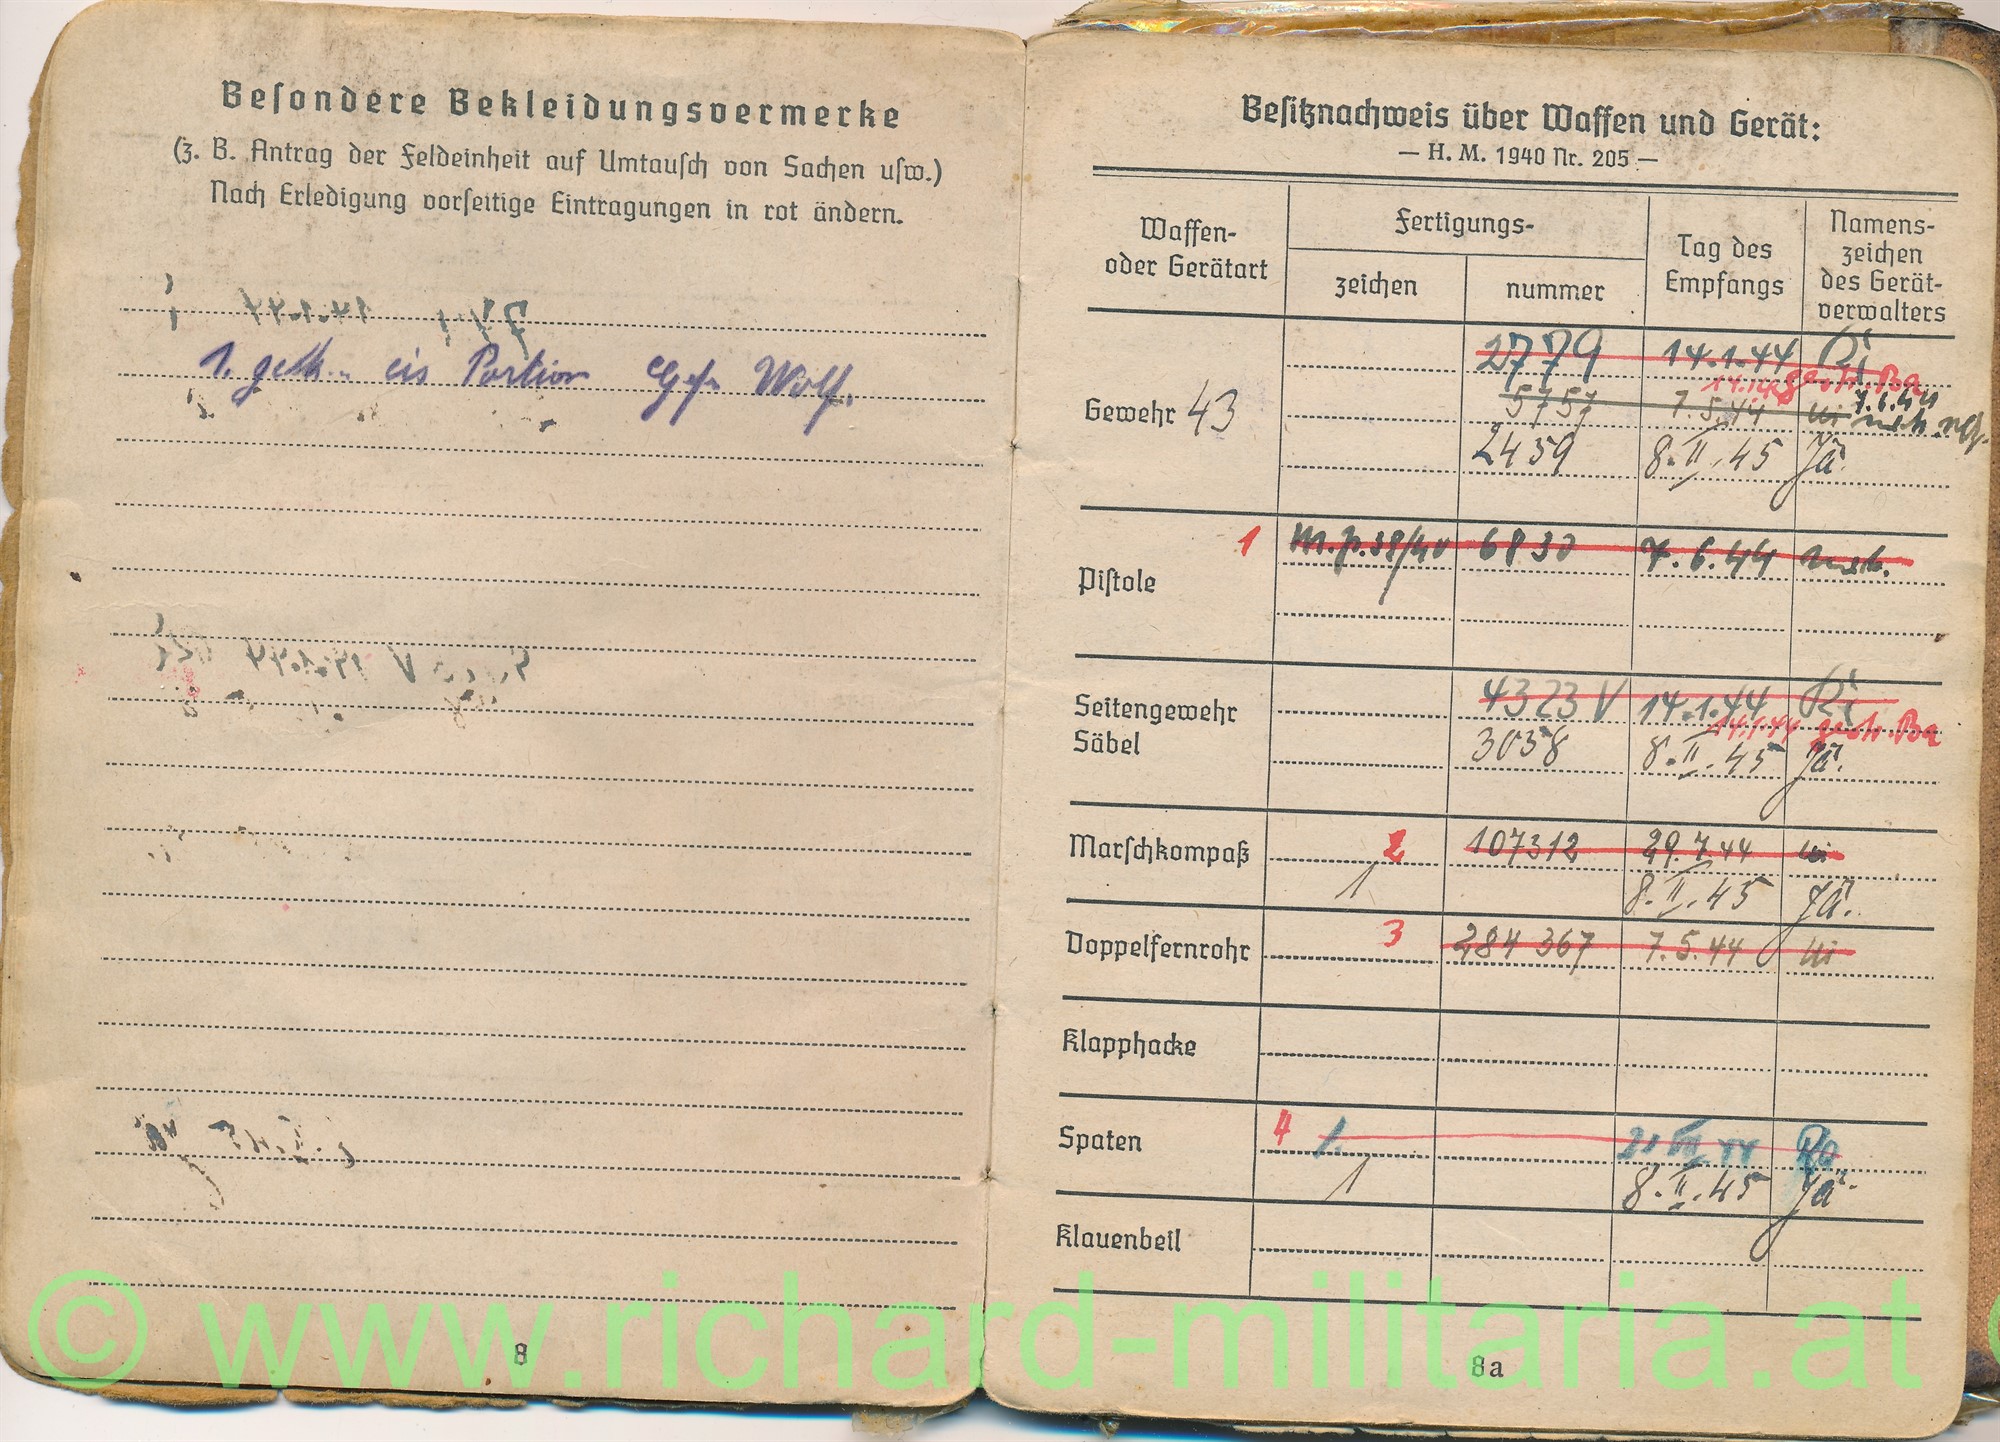 Besondere Bekleidungsvermerke
(z. B. Antrag der Feldeinheit auf Umtausch von Sachen usw.)
Nach Erledigung vorseitige Eintragungen in rot ändern.
1. Portion Wolf.
8
Besitznachweis über Waffen und Gerät:
— H. M. 1940 Nr. 205 —
Waffen- oder Gerätart
Fertigungs-
zeichen
nummer
Tag des Empfangs
Namens- zeichen des Gerät- verwalters
Gewehr 43
2779 14.1.44 Ri
Ba
5757 7.5.44 7.6.44
2459 8.II.45 Jä.
Pistole
1 M.P.38/40 6830 7.6.44
Seitengewehr Säbel
4323 V 14.1.44 Ri
14.1.44 Ba
3058 8.II.45 Jä.
Marschkompaß
2 107312 29.7.44
1 8.II.45 Jä.
Doppelfernrohr
3 284 367 7.5.44
Klapphacke
Spaten
4 1.
1 8.II.45 Jä.
Klauenbeil
8a
© www.richard-militaria.at ©